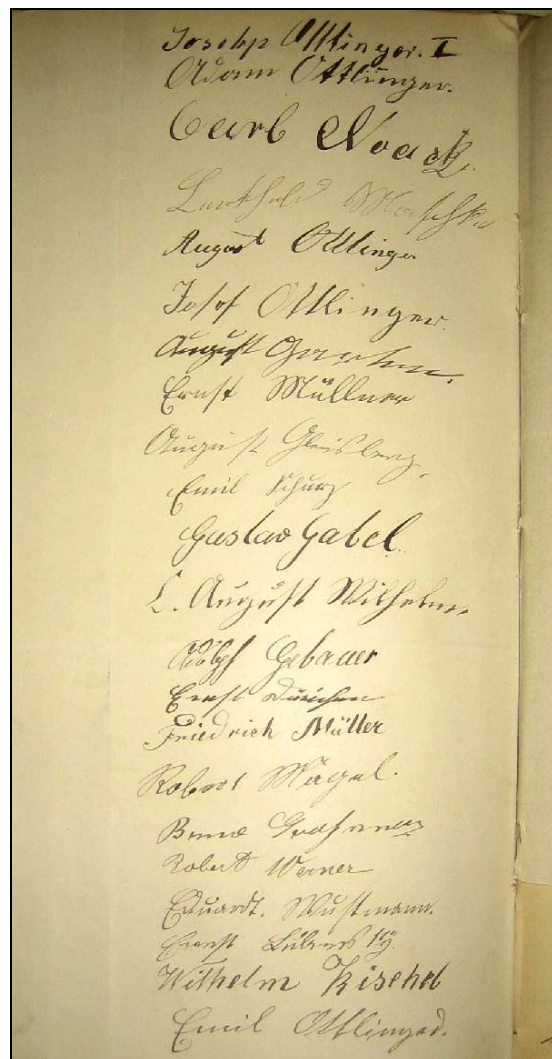 Joseph Ottlinger. I
Adam Ottlinger.
Carl Noack.
Maschke
August Ottlinger
Josef Ottlinger.
August Garten.
Ernst Müllner
August Gleisberg.
Emil Schurz
Gustav Gabel
C. August Wilhelm.
Adolph Gebauer
Ernst
Friedrich Müller
Robert Nagel.
Bruno
Robert Werner
Eduardt. Wustmann.
Ernst
Wilhelm Zischel
Emil Ottlinger.